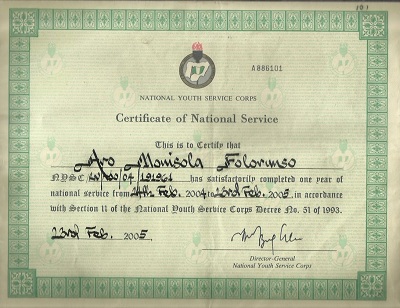 A886101
NATIONAL YOUTH SERVICE CORPS
Certificate of National Service
This is to Certify that
Aro Monisola Folorunso
NYSC/ /04/191961 has satisfactorily completed one year of
national service from 24th Feb. 2004 to 23rd Feb. 2005, in accordance
with Section 11 of the National Youth Service Corps Decree No. 51 of 1993.
23rd Feb. 2005.
Director-General
National Youth Service Corps